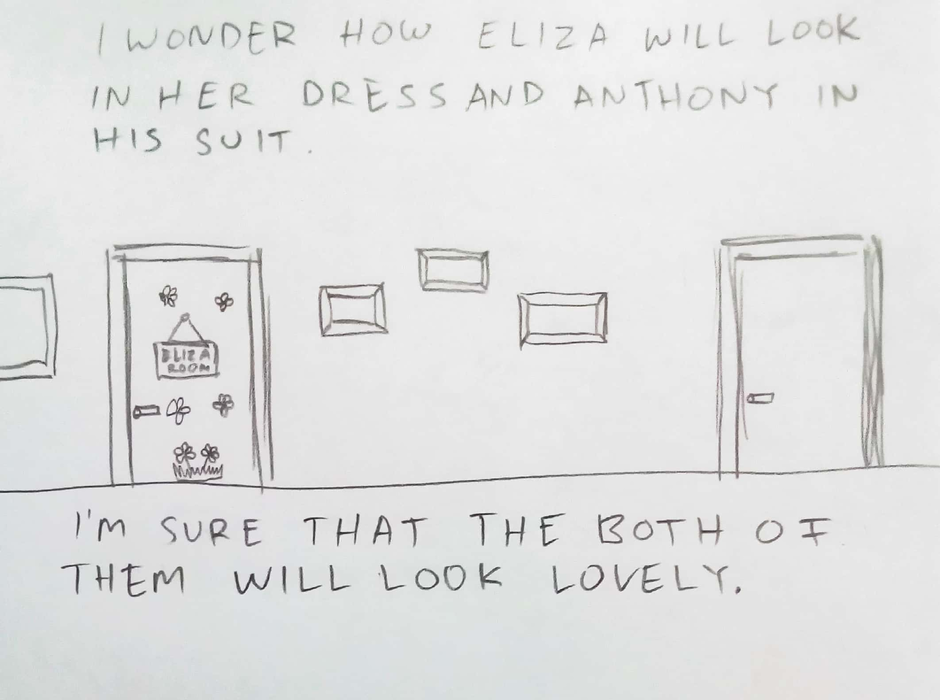 I WONDER HOW ELIZA WILL LOOK
IN HER DRESS AND ANTHONY IN
HIS SUIT.
ELIZA
ROOM
I'M SURE THAT THE BOTH OF
THEM WILL LOOK LOVELY.